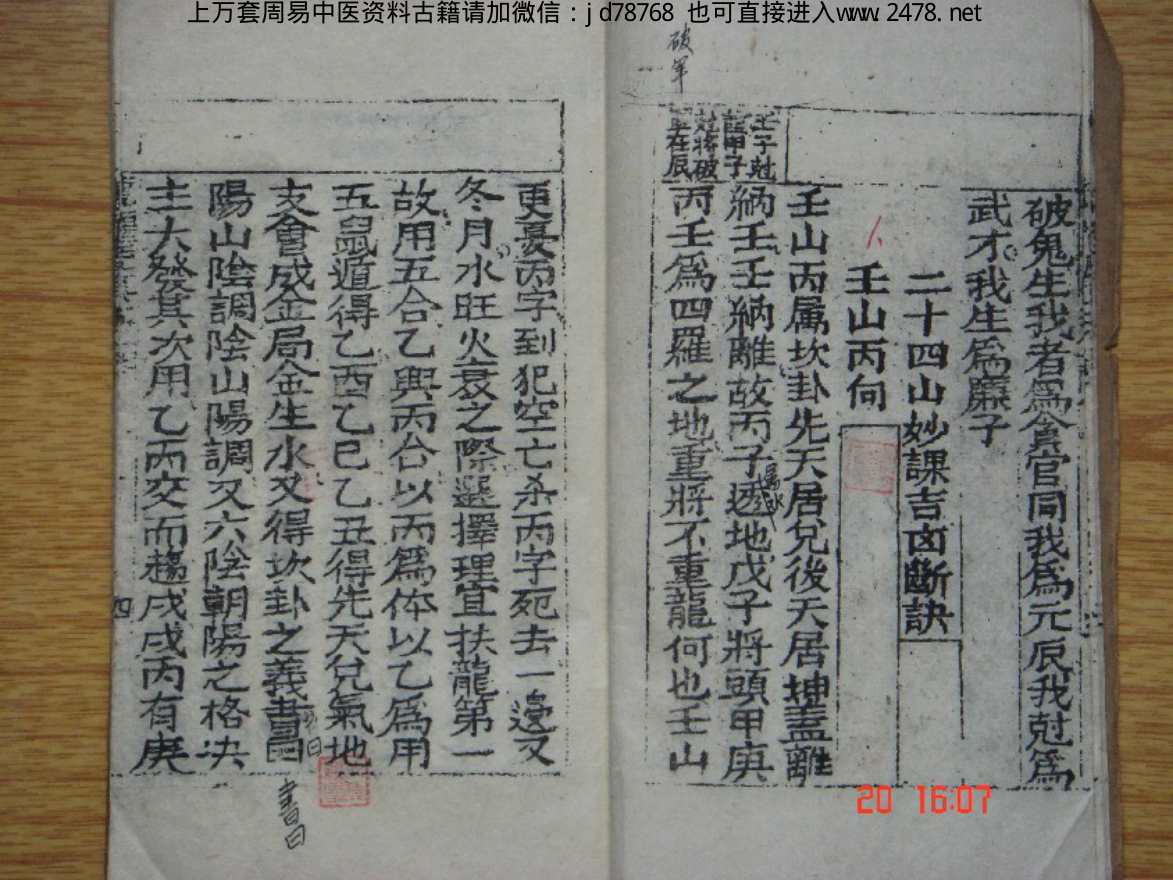 上万套周易中医资料古籍请加微信：jd78768 也可直接进入www.2478.net
破軍
破鬼生我者為貪官同我為元辰我尅為
武才我生為廉子
二十四山妙課吉凶斷訣
壬山丙向
壬子尅
龍甲子
尅將破
軍在辰
壬山丙属坎卦先天居兌後天居坤盖離
納壬壬納離故丙子透地戊子將頭甲庚
属水
丙壬為四羅之地重將不重龍何也壬山
更憂丙字到犯空亡杀丙字死去一邊又
冬月水旺火衰之際選擇理宜扶龍第一
故用五合乙與丙合以丙為体以乙為用
五鼠遁得乙酉乙巳乙丑得先天兌氣地
支會成金局金生水又得坎卦之義書曰
書曰
陽山陰調陰山陽調又六陰朝陽之格决
主大發其次用乙丙交而趨戌戌丙有庚
四
20 16:07